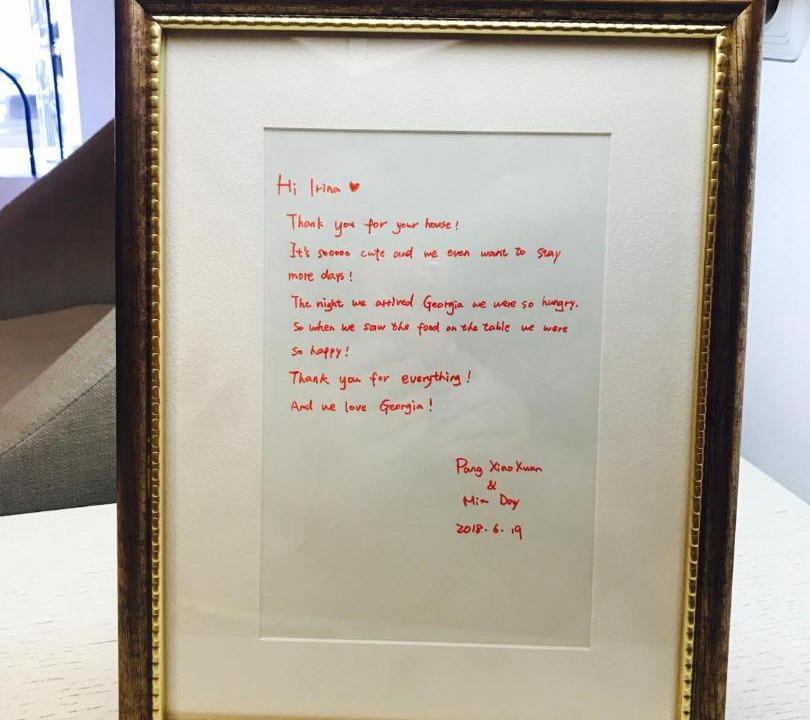 Hi Irina ♥
Thank you for your house!
It's sooooo cute and we even want to stay
more days!
The night we arrived Georgia we were so hungry.
So when we saw the food on the table we were
so happy!
Thank you for everything!
And we love Georgia!
Pang XiaoXuan
&
Mia Doy
2018.6.19